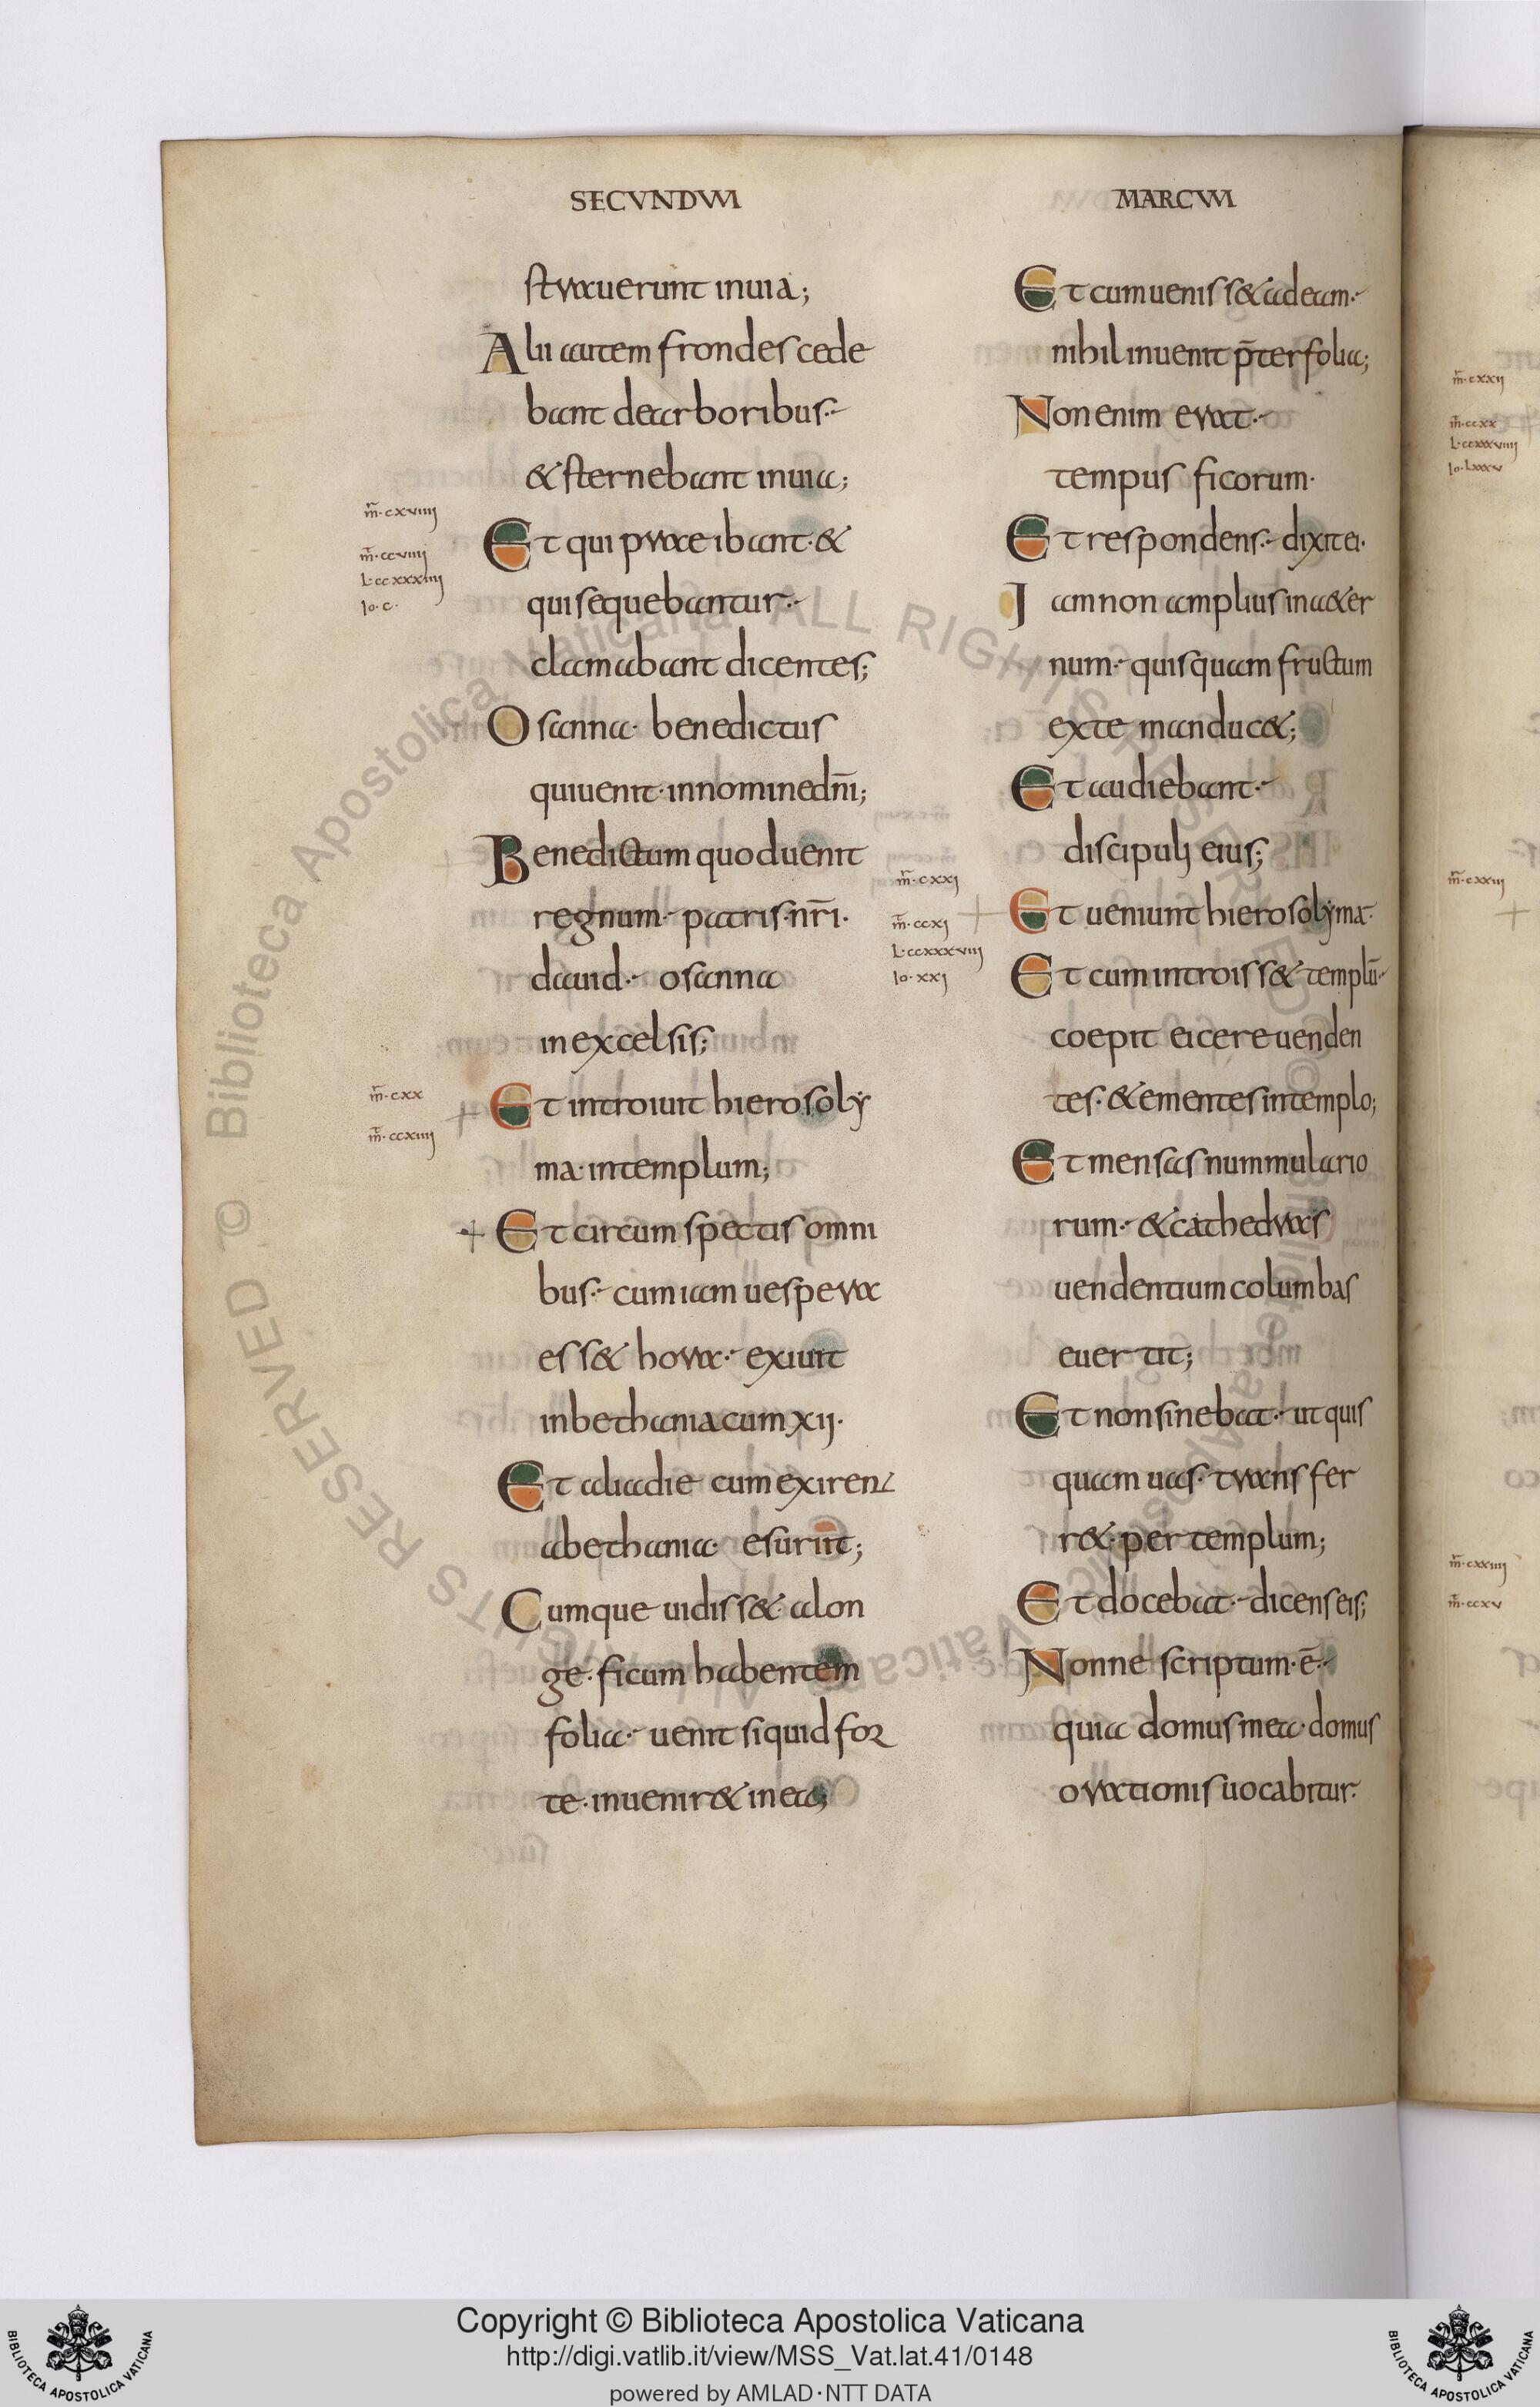 SECUNDUM
strauerunt inuia;
Alii autem frondes cede
bant de arboribus·
& sternebant inuia;
mr·cxviiii
mt·ccviiii
L·ccxxxiiii
Io·c·
Et qui praeibant·&
qui sequebantur·
clamabant dicentes;
Osanna· benedictus
qui uenit· in nomine dnī;
Benedictum quod uenit
regnum· patris·nrī·
dauid· osanna
in excelsis;
mr·cxx
mt·ccxiiii
Et introiuit hierosoly
ma· in templum;
Et circum spectis omni
bus· cum iam uespera
ess& hora· exiuit
in bethania cum xij·
Et alia die cum exirent
a bethania· esuriit;
Cumque uidiss& a lon
ge· ficum habentem
folia· uenit si quid for
te· inuenir& in ea;
MARCUM
Et cum ueniss& ad eam·
nihil inuenit p̄ter folia;
Non enim erat·
tempus ficorum·
Et respondens· dixit ei·
Iam non amplius in a&er
num· quisquam fructum
ex te manduc&;
Et audiebant·
discipuli eius;
mr·cxxj
mt·ccxj
L·ccxxxviij
Io·xxj
Et ueniunt hierosolyma·
Et cum introiss& templū·
coepit eicere uenden
tes·& ementes in templo;
Et mensas nummulario
rum·& cathedras
uendentium columbas
euertit;
Et non sinebat· ut quis
quam uas· transfer
r& per templum;
Et docebat· dicens eis;
Nonne scriptum·ē·
quia domus mea· domus
orationis uocabitur·
mr·cxxij
mt·ccxx
L·ccxxxviiij
Io·lxxxv
mr·cxxiij
mr·cxxiiij
mt·ccxv
Copyright © Biblioteca Apostolica Vaticana
http://digi.vatlib.it/view/MSS_Vat.lat.41/0148
powered by AMLAD·NTT DATA
BIBLIOTECA APOSTOLICA VATICANA
BIBLIOTECA APOSTOLICA VATICANA
© Biblioteca Apostolica Vaticana ALL RIGHTS RESERVED © Biblioteca Apostolica Vaticana ALL RIGHTS RESERVED